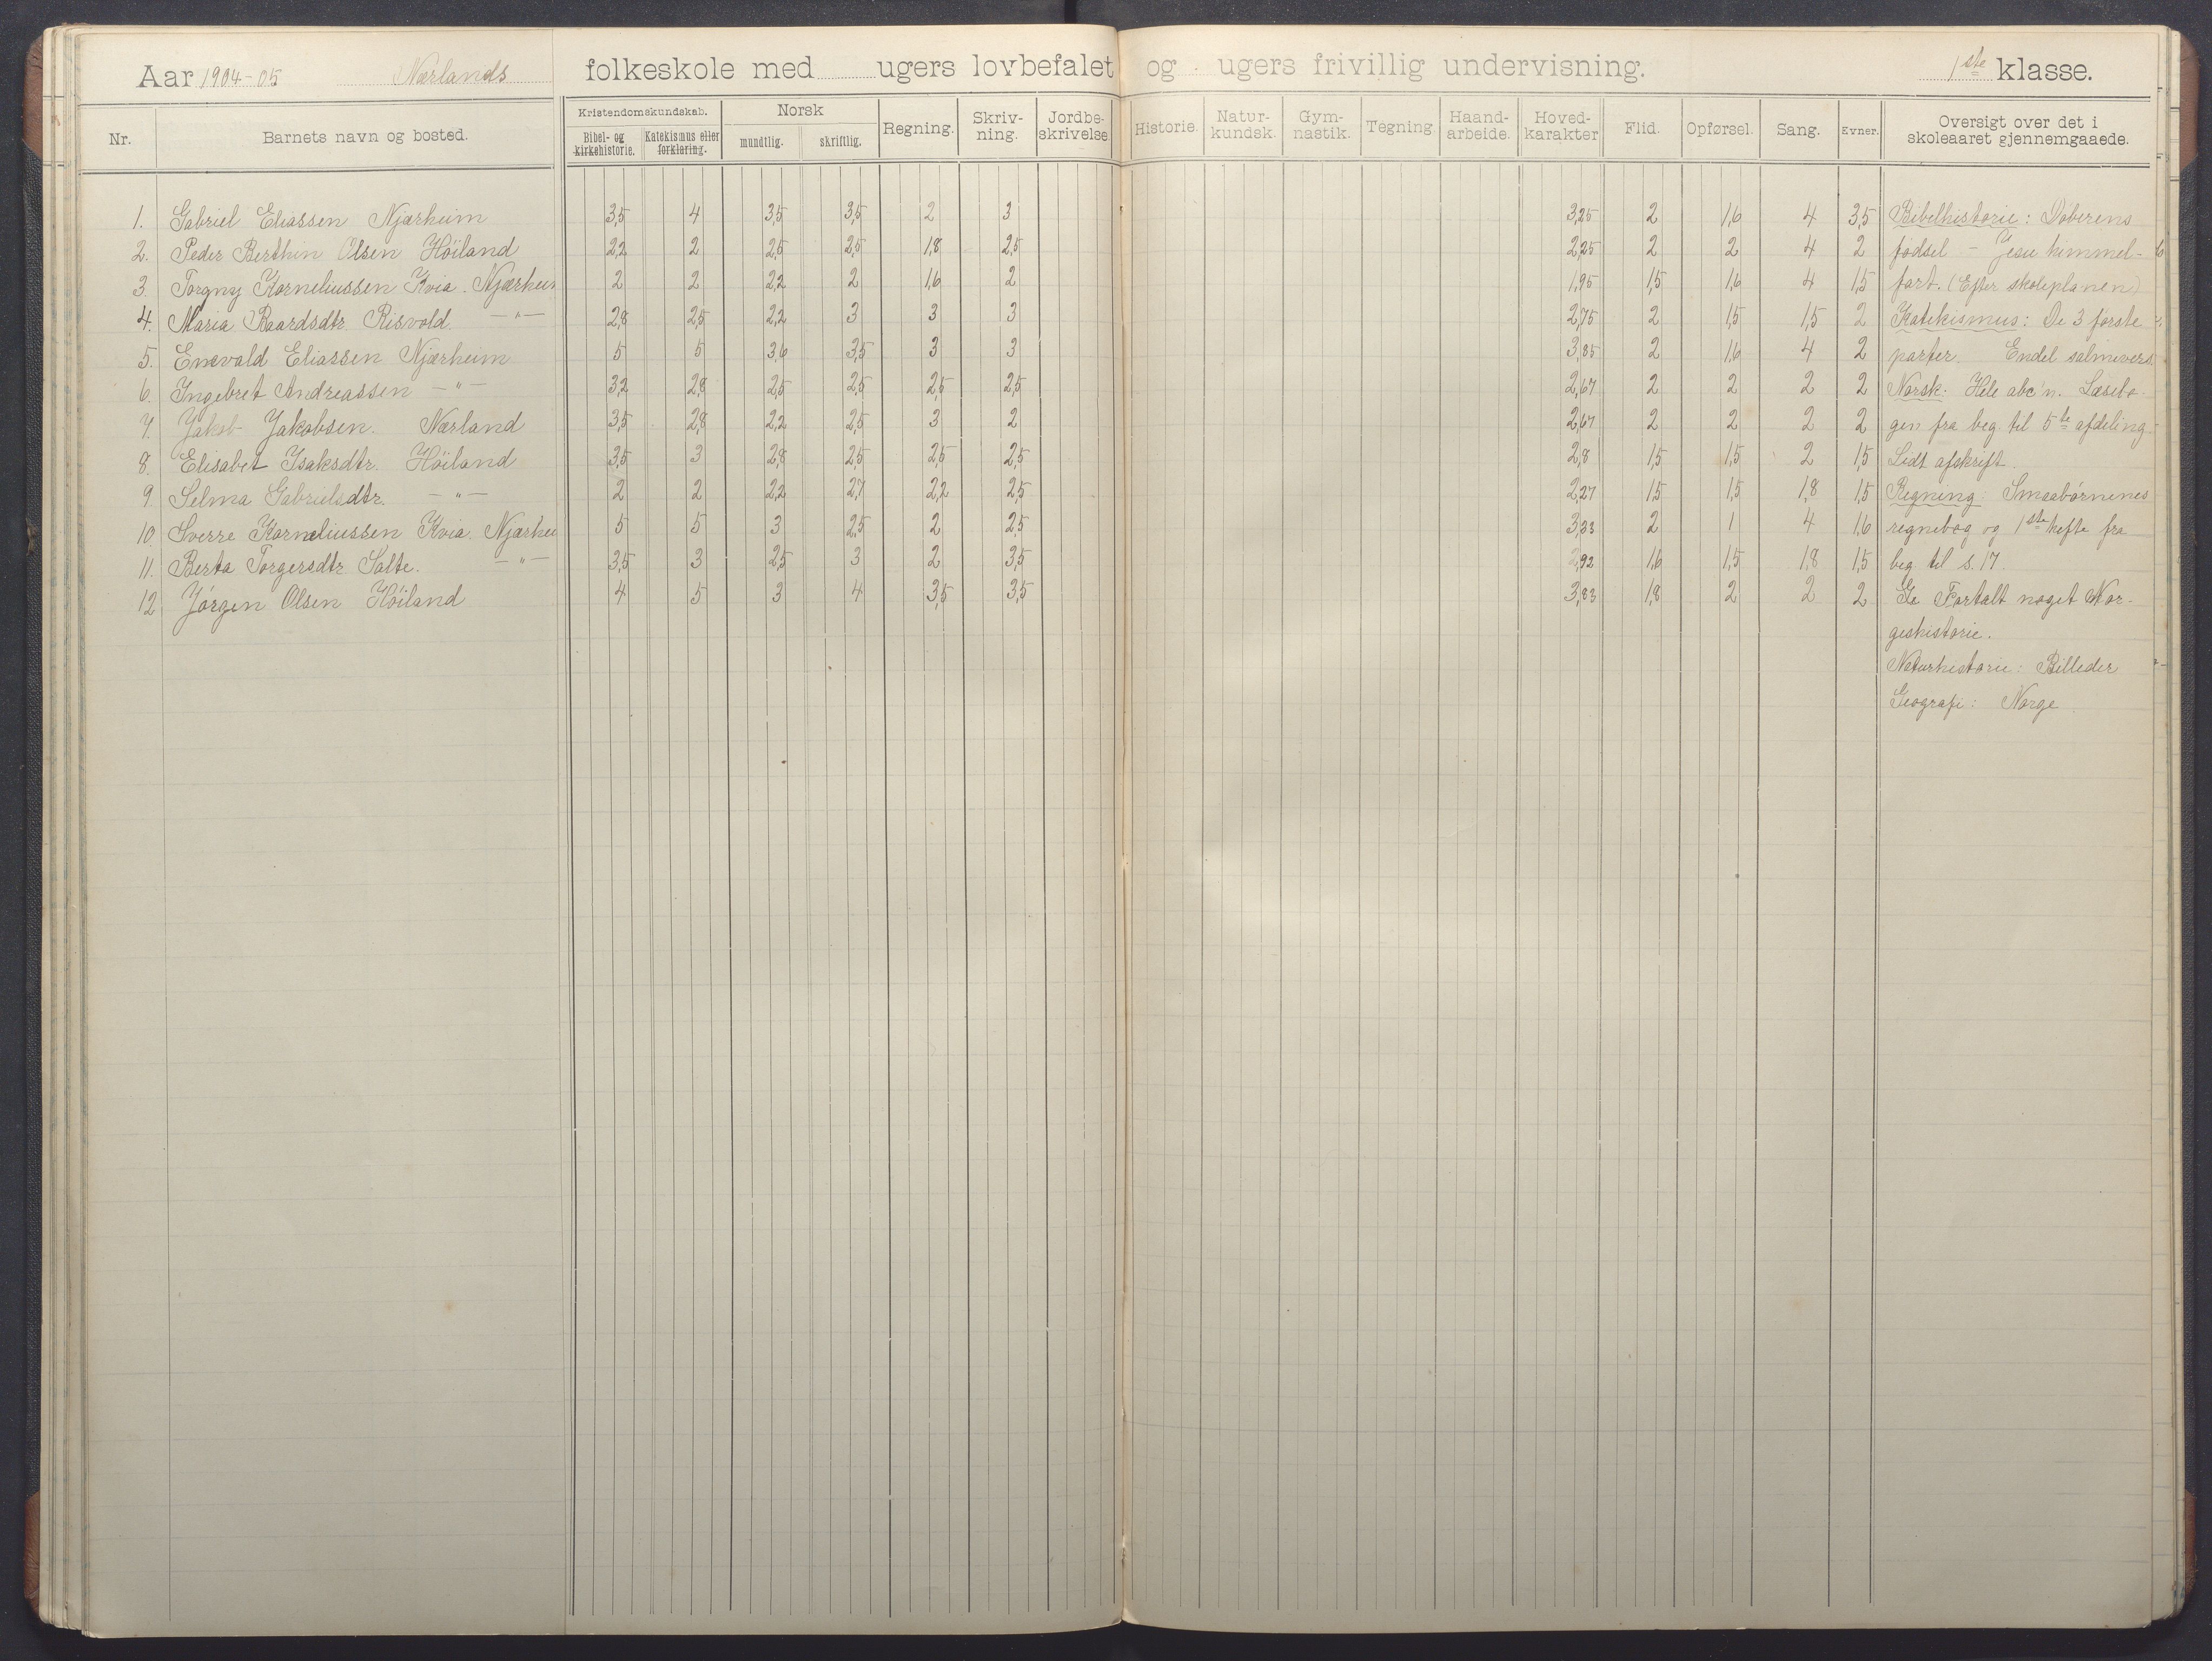 Aar 1904-05 Nærlands folkeskole med ugers lovbefalet og ugers frivillig undervisning. 1ste klasse.
Nr. Barnets navn og bosted. Kristendomskundskab. Bibel- og kirkehistorie. Katekismus eller forklaring. Norsk mundtlig. skriftlig. Regning. Skriv-ning. Jordbe-skrivelse Historie. Natur-kundsk. Gym-nastik. Tegning Haand-arbeide. Hoved-karakter Flid. Opførsel. Sang. Evner. Oversigt over det i skoleaaret gjennemgaaede.
1. Gabriel Eliassen Njærheim 3,5 4 3,5 3,5 2 3 3,25 2 1,6 4 3,5 Bibelhistorie: Døberens
2. Peder Berthin Olsen Höiland 2,2 2 2,5 2,5 1,8 2,5 2,25 2 2 4 2 fødsel - Jesu himmel-
3. Torgny Korneliussen Kvia. Njærheim 2 2 2,2 2 1,6 2 1,95 1,5 1,6 4 1,5 fart. (Efter skoleplanen)
4. Maria Baardsdtr. Risvold. -"- 2,8 2,5 2,2 3 3 3 2,75 2 1,5 1,5 2 Katekismus: De 3 første
5. Enevald Eliassen Njærheim 5 5 3,6 3,5 3 3 3,85 2 1,6 4 2 parter. Endel salmevers.
6. Ingebret Andreassen -"- 3,2 2,8 2,5 2,5 2,5 2,5 2,67 2 2 2 2 Norsk: Hele abc'n. Læsebo-
7. Jakob Jakobsen. Nærland 3,5 2,8 2,2 2,5 3 2 2,67 2 2 2 2 gen fra beg til 5te afdeling.
8. Elisabet Isaksdtr. Höiland 3,5 3 2,8 2,5 2,5 2,5 2,8 1,5 1,5 2 1,5 Lidt afskrift.
9. Selma Gabrielsdtr. -"- 2 2 2,2 2,7 2,2 2,5 2,27 1,5 1,5 1,8 1,5 Regning: Smaabørnenes
10. Sverre Korneliussen Kvia. Njærhei 5 5 3 2,5 2 2,5 3,33 2 1 4 1,6 regnebog og 1ste hefte fra
11. Berta Torgersdtr Salte. -"- 3,5 3 2,5 3 2 3,5 2,92 1,6 1,5 1,8 1,5 beg til s. 17.
12 Jørgen Olsen Höiland 4 5 3 4 3,5 3,5 3,83 1,8 2 2 2 Fortalt noget Nor-
geshistorie.
Naturhistorie: Billeder
Geografi: Norge